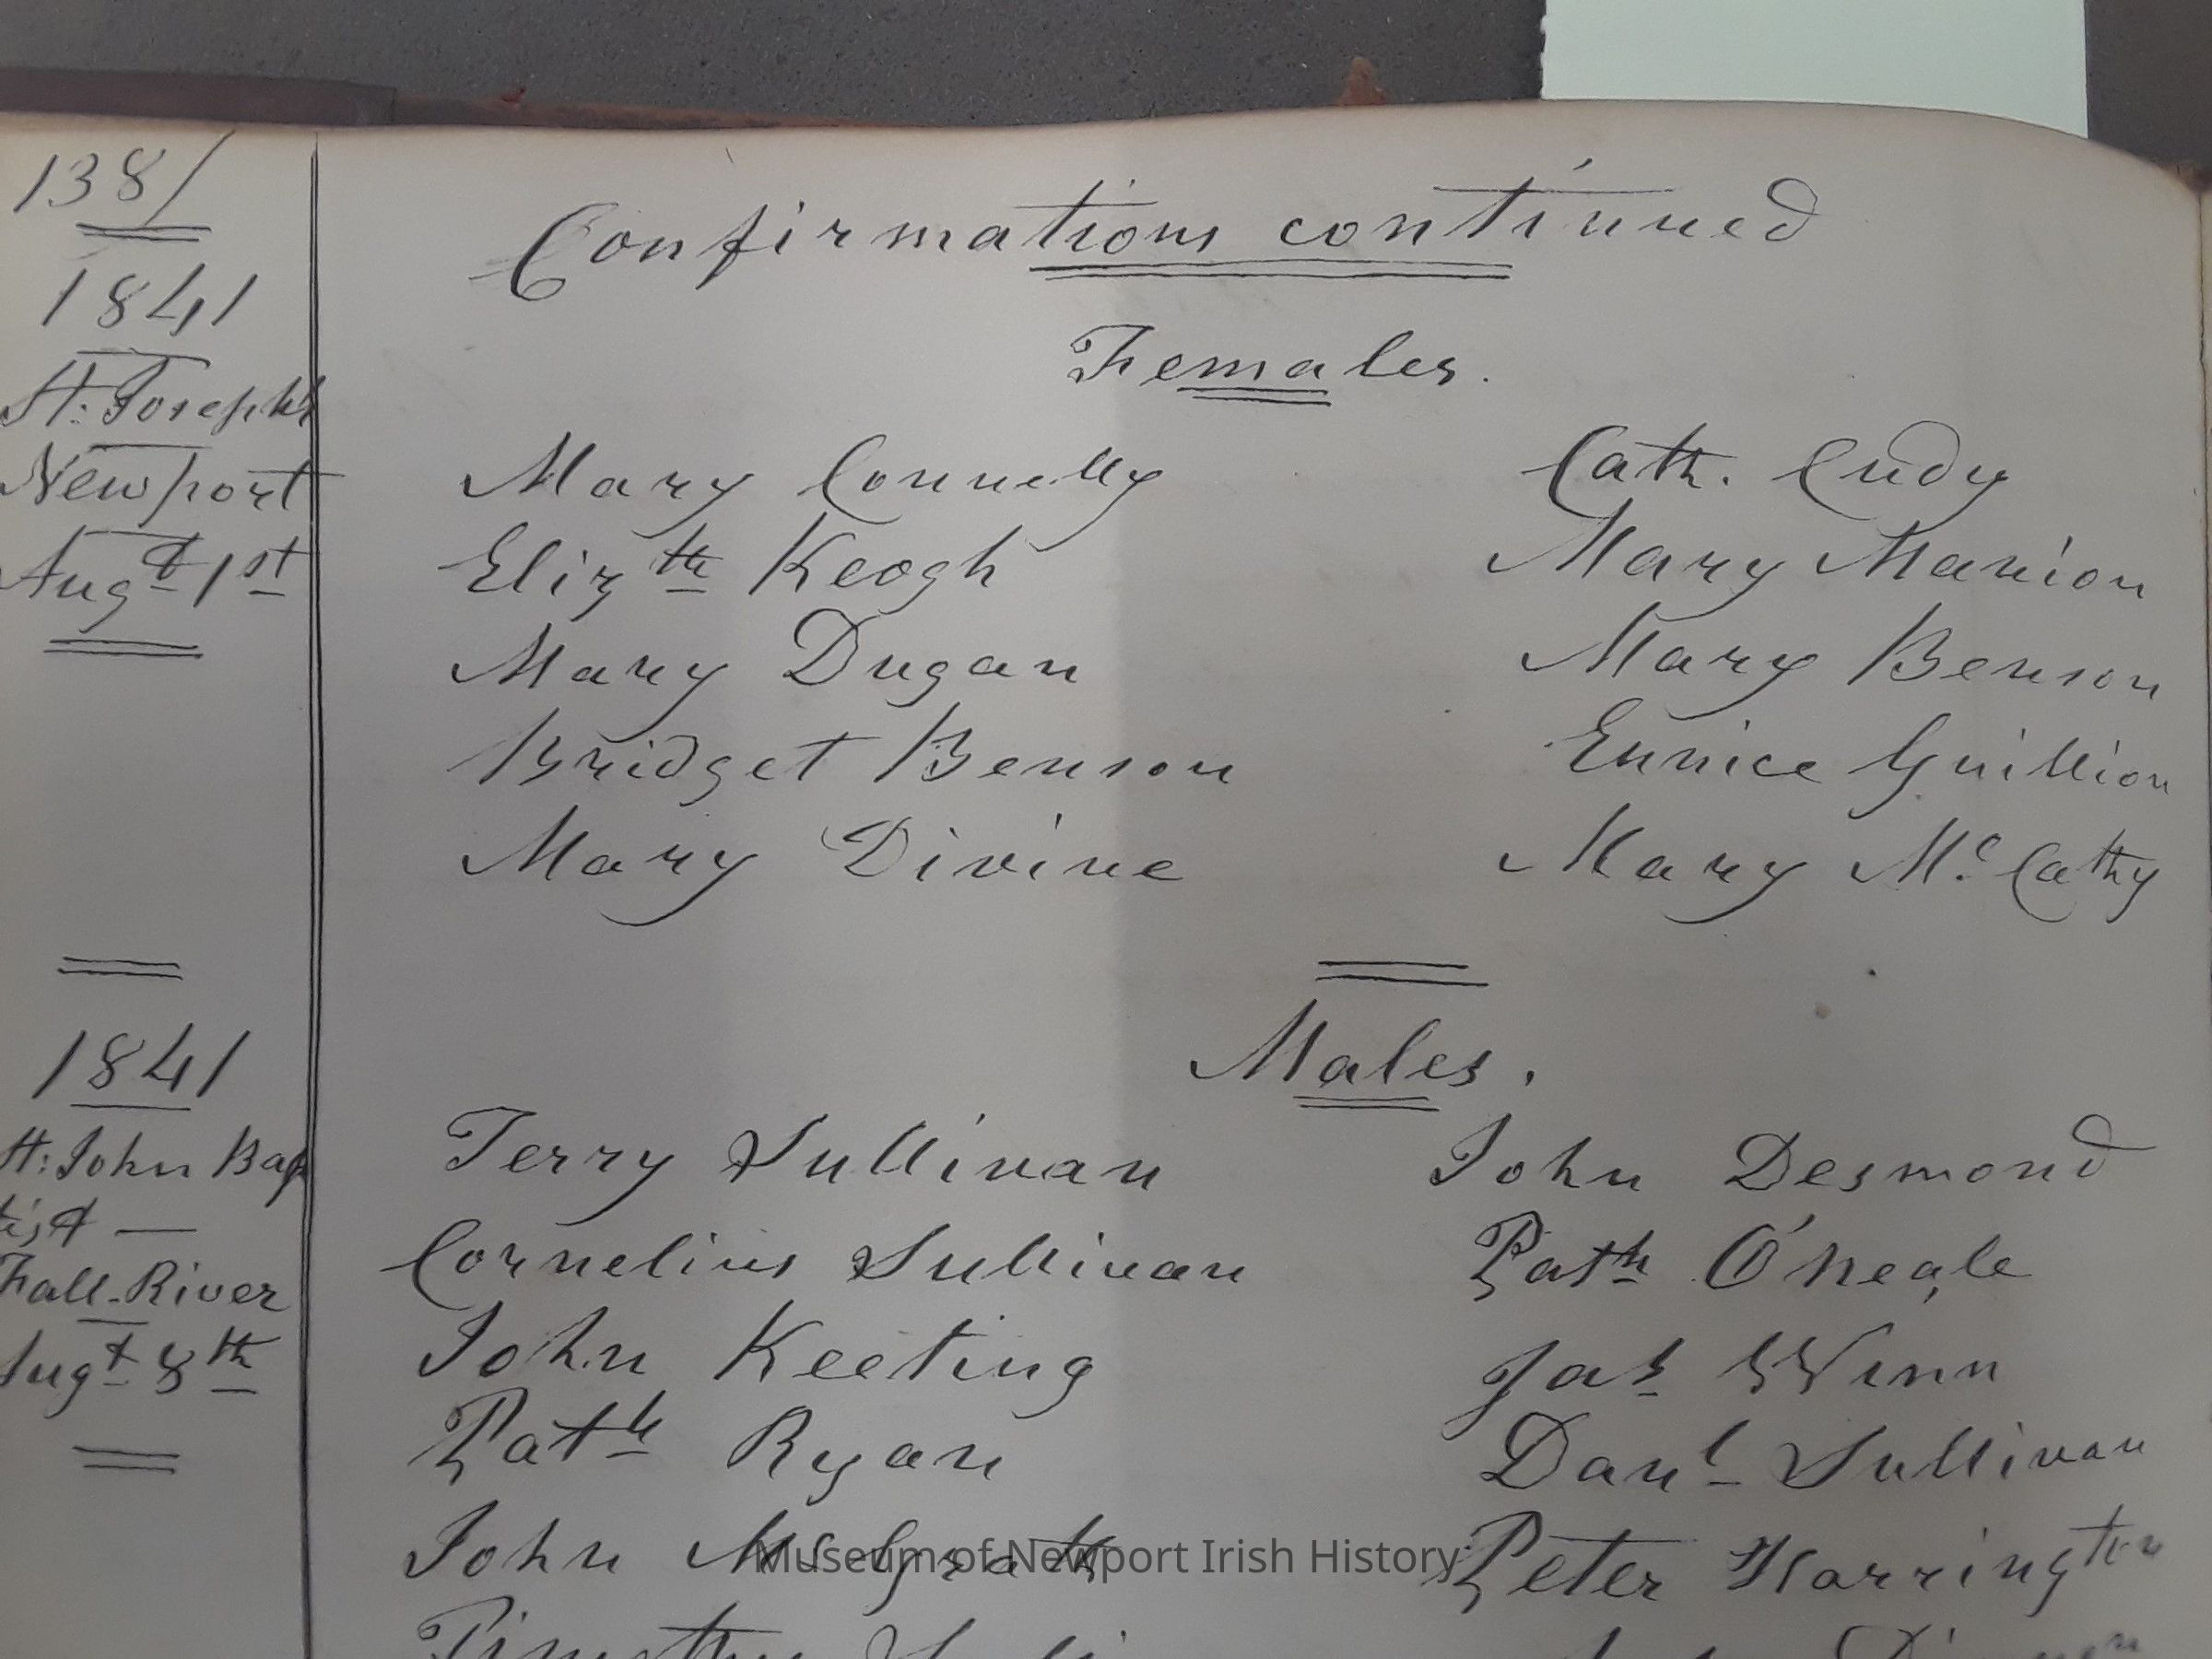 138/
Confirmations continued
1841
Females.
St: Joseph's
Newport
Augt 1st
Mary Connelly Cath. Cudy
Elizth Keogh Mary Manion
Mary Dugan Mary Benson
Bridget Benson Eunice Guillion
Mary Divine Mary Mc. Cathy
Males.
1841
St: John Bap
tist —
Fall-River
Augt 8th
Terry Sullivan John Desmond
Cornelius Sullivan Patk O'Neale
John Keeting Jas Winn
Patk Ryan Danl Sullivan
John Mc Grath Peter Harrington
Timothy
Museum of Newport Irish History